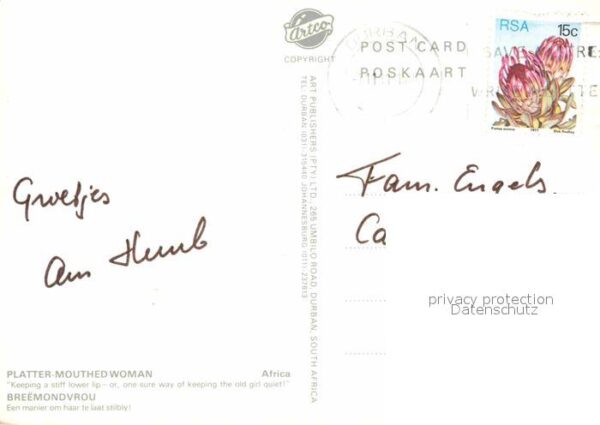 Artco
COPYRIGHT
POST CARD
POSKAART
RSA 15c
ART PUBLISHERS (PTY) LTD., 265 UMBILO ROAD, DURBAN, SOUTH AFRICA
TEL. DURBAN (031) 315440 JOHANNESBURG (011) 237813
Groetjes
Fam. Engels
Ca
privacy protection
Datenschutz
PLATTER-MOUTHED WOMAN Africa
"Keeping a stiff lower lip – or, one sure way of keeping the old girl quiet!"
BREËMONDVROU
Een manier om haar te laat stilbly!